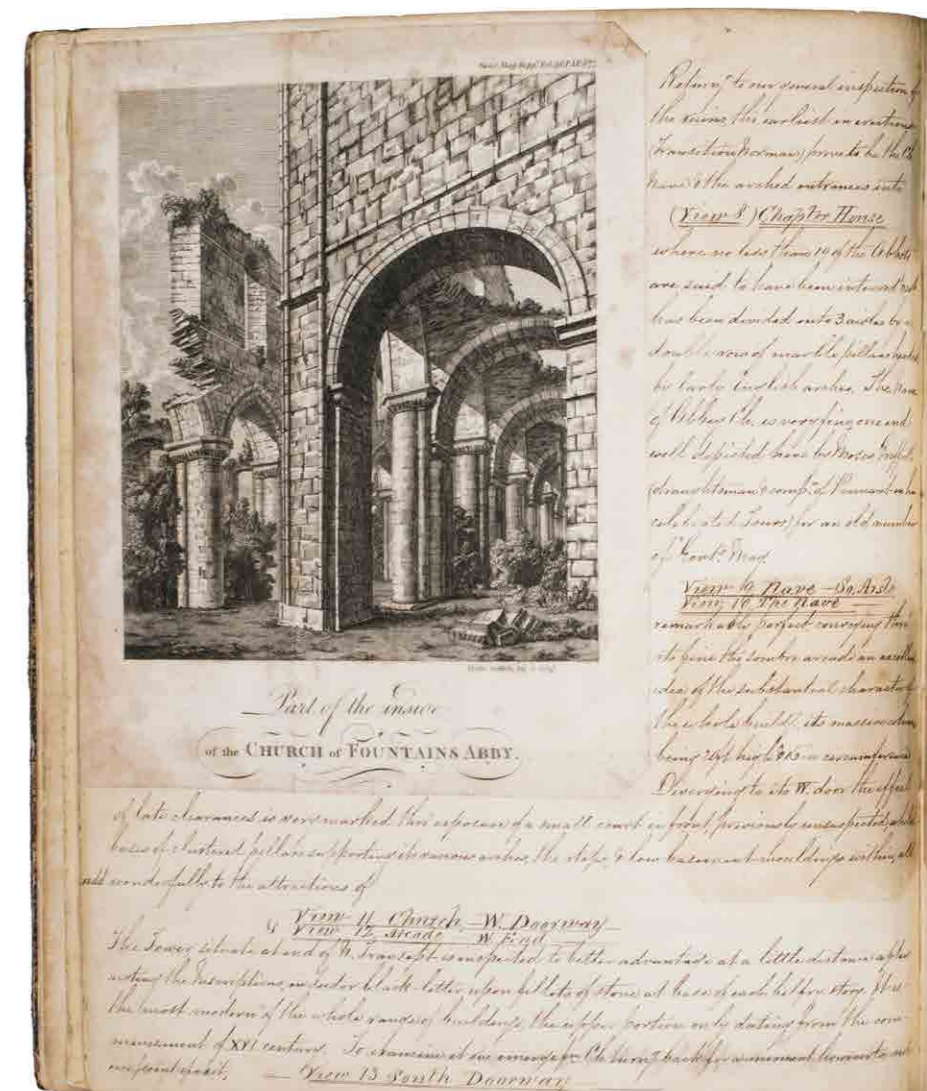 Return.g to our general inspection of
the ruins, the earliest in erection
(Transition Norman) prove to be the Ch.
Nave & the arched entrances into
(View 8) Chapter House
where no less than 19 of the Abbots
are said to have been interred &
has been divided into 3 aisles by a
double row of marble pillars
by Early English arches. The Nave
of Abbey Ch. is a very fine one and
well depicted here by Moses Griffith
(draughtsman & comp.n of Pennant in
celebrated Tours) for an old number
of Gent.s Mag.
View 9 Nave - So. Aisle
View 10 The Nave
remarkably perfect conveying thro'
its fine tho' sombre arcade an excellent
idea of the substantial character of
the whole build.g its massive columns
being high & in circumference
Diverging to its W. door the effect
Part of the inside
of the CHURCH of FOUNTAINS ABBY.
of late clearances is very marked thro' exposure of a small court in front, previously unsuspected, while
bases of clustered pillars supporting its various arches, the steps & low basement mouldings within, all
add wonderfully to the attractions of
View 11 Church - W. Doorway
View 12 Arcade W. End
The Tower situate at end of N. Transept is inspected to better advantage at a little distance after
noting the Inscriptions, in Tudor black-letter, upon fillets of stone at base of each belfry story. It is
the most modern of the whole range of buildings, the upper portion only dating from the com-
mencement of XVI century. To examine it we emerge fr. Ch. turn.g back for a moment however to
View 13 South Doorway